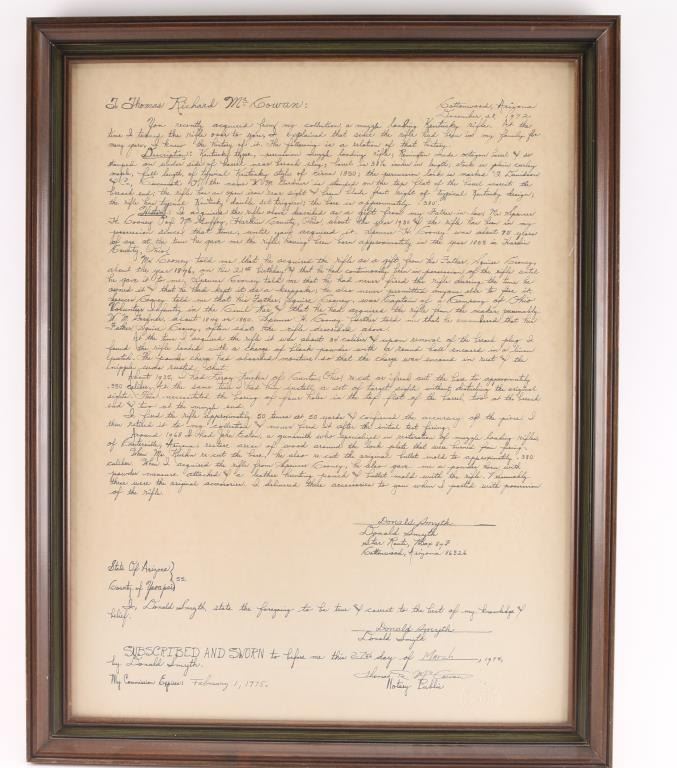 To Thomas Richard McCowan:
Cottonwood, Arizona
December 1972
You recently acquired from my collection a muzzle loading Kentucky rifle. At the
time I turned the rifle over to you, I explained that since the rifle had been in my family for
many years, I knew the history of it. The following is a relation of that history.
Description: Kentucky type, percussion muzzle loading rifle, Remington made octagon barrel & so
stamped on under side of barrel near breech plug; barrel is 39 1/2 inches in length, stock is plain curley
maple, full length of typical Kentucky style of circa 1850; the percussion lock is marked
& Co., Cincinnati O; the name W M Gardner is stamped on the top flat of the barrel near the
breech end; the rifle has an open iron rear sight & front sight of typical Kentucky design;
the rifle has typical Kentucky double set triggers; the bore is approximately .380".
History: I acquired the rifle above described as a gift from my Father in law, Mr Spencer
H. Cooney Hardin County, Ohio, about the year 1930 & the rifle has been in my
possession since that time, until you acquired it. Spencer H. Cooney was about years
of age at the time he gave me the rifle, having been born approximately in the year in Hardin
County, Ohio.
Mr. Cooney told me that he acquired the rifle as a gift from his Father Squire Cooney,
about the year 1896, on his 21st birthday & that he had continuously been in possession of the rifle until
he gave it to me; Spencer Cooney told me that he had never fired the rifle during the time he
owned it & that he had kept it as a keepsake; he also never permitted anyone else to fire it.
Spencer Cooney told me that his Father, Squire Cooney, was Captain of a Company of Ohio
Volunteer Infantry in the Civil War & that he had acquired the rifle from the maker presumably
W. M. Gardner, about 1849 or 1850. Spencer H. Cooney further told me that he remembered that his
Father Squire Cooney, often shot the rifle described above.
At the time I acquired the rifle it was about 36 caliber & upon removal of the breech plug I
found the rifle loaded with a charge of black powder with the round ball encased in a linen
patch. The powder charge had absorbed moisture so that the charge was encased in rust & the
nipple was rusted shut.
About 1935, I had of Kenton, Ohio, re-cut or freed out the bore to approximately
.380 caliber. At the same time I had him install a set of target sights without disturbing the original
sights. This necessitated the boring of four holes in the top flat of the barrel, two at the breech
end & two at the muzzle end.
I fired the rifle approximately 50 times at 50 yards & confirmed the accuracy of the piece. I
then retired it to my collection & never fired it after the initial test firing.
Around 1968 I had a gunsmith who specialized in restoration of muzzle loading rifles,
of Arizona, restore areas of wood around the lock plate that were burned from firing.
When Mr. re-cut the bore, he also re-cut the original bullet mold to approximately .380
caliber. When I acquired the rifle from Spencer Cooney, he also gave me a powder horn with
powder measure attached & a leather hunting pouch & bullet mold with the rifle. Presumably
these were the original accessories. I delivered these accessories to you when I parted with possession
of the rifle.
Donald Smyth
Donald Smyth
Star Route, Box
Cottonwood, Arizona 86326
State Of Arizona }
County of Yavapai } ss.
I, Donald Smyth, state the foregoing to be true & correct to the best of my knowledge &
belief.
Donald Smyth
Donald Smyth
SUBSCRIBED AND SWORN to before me this 27th day of March, 1973,
by Donald Smyth.
My Commission Expires: February 1, 1975.
Thomas R. McCowan
Notary Public